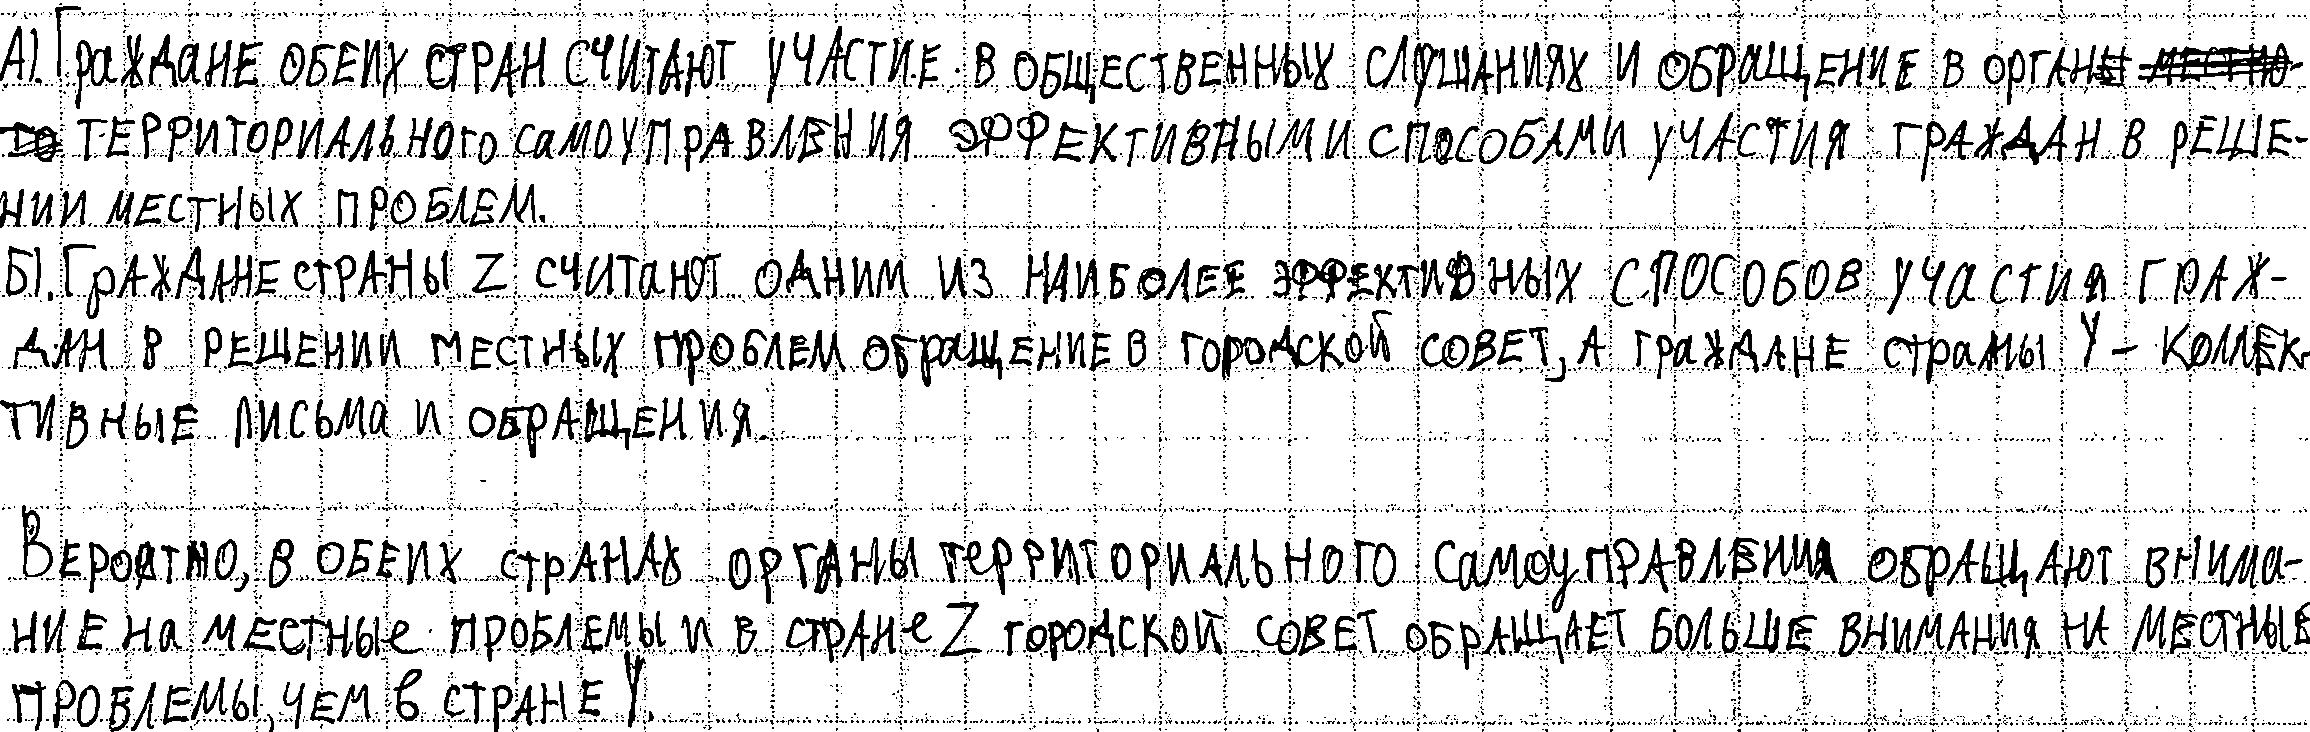 А). Граждане обеих стран считают участие в общественных слушаниях и обращение в органы местно-
го территориального самоуправления эффективными способами участия граждан в реше-
нии местных проблем.
Б). Граждане страны Z считают одним из наиболее эффективных способов участия граж-
дан в решении местных проблем обращение в городской совет, а граждане страны Y – коллек-
тивные письма и обращения.
Вероятно, в обеих странах органы территориального самоуправления обращают внима-
ние на местные проблемы и в стране Z городской совет обращает больше внимания на местные
проблемы, чем в стране Y.